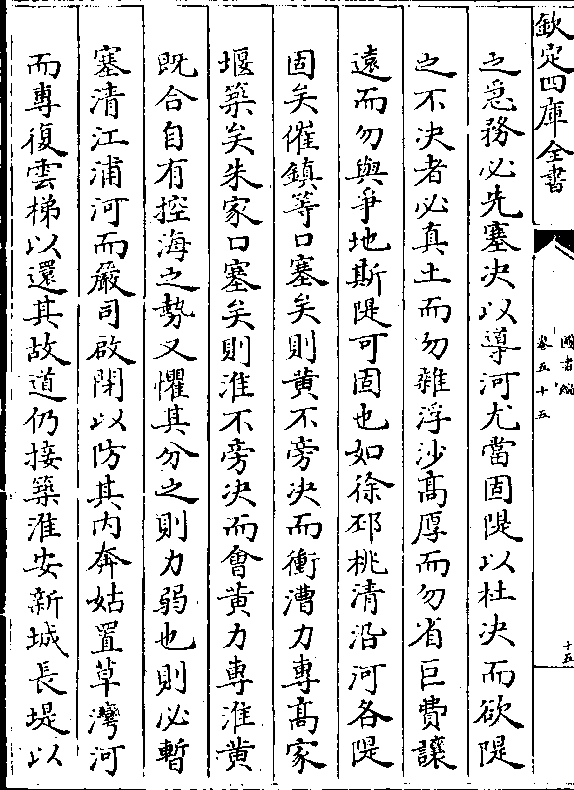 欽定四庫全書
圖書編
卷五十五
十五
之急務必先塞决以導河尤當固隄以杜决而欲隄
之不决者必真土而勿雜浮沙髙厚而勿省巨費讓
逺而勿與爭地斯隄可固也如徐邳桃清沿河各隄
固矣催鎮等口塞矣則黄不旁决而衝漕力專髙家
堰築矣朱家口塞矣則淮不旁决而會黄力專淮黄
既合自有控海之勢又懼其分之則力弱也則必暫
塞清江浦河而嚴司啟閉以防其内奔姑置草灣河
而專復雲梯以還其故道仍接築淮安新城長堤以